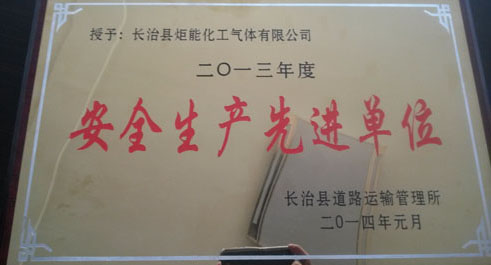 授予：长治县炬能化工气体有限公司
二〇一三年度
安全生产先进单位
长治县道路运输管理所
二〇一四年元月